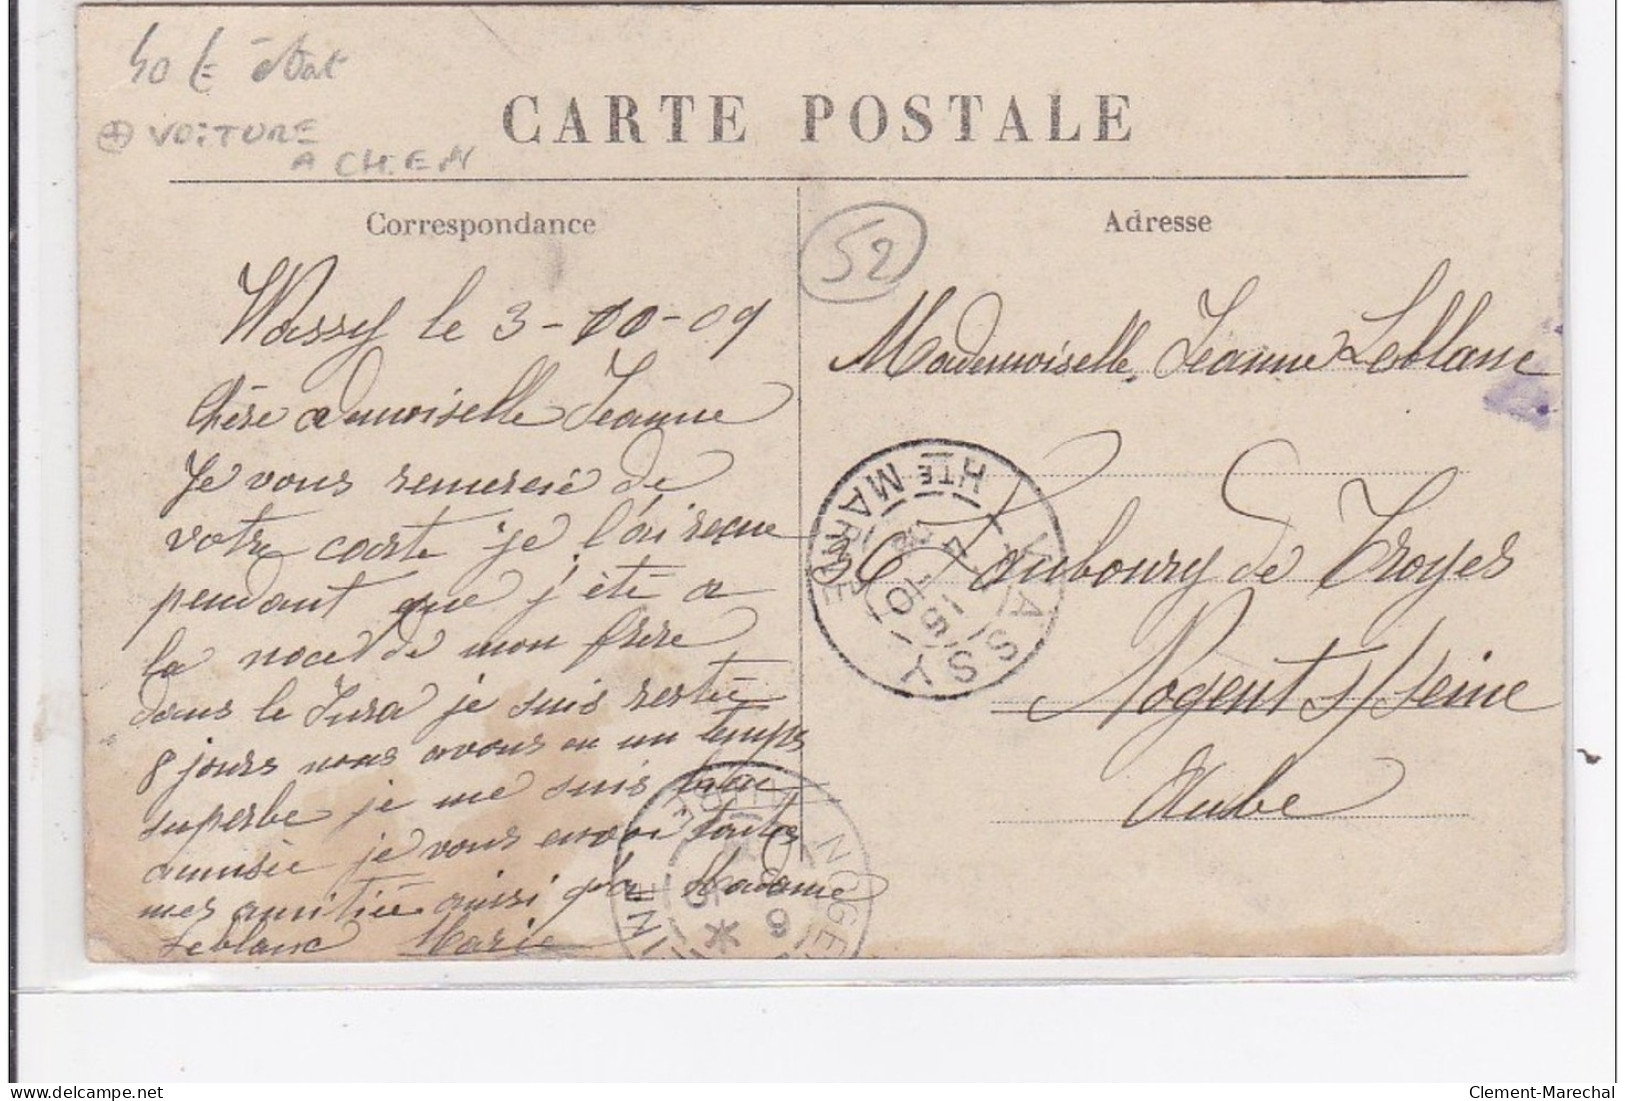 40 € état
VOITURE
A CHIEN
CARTE POSTALE
Correspondance
Wassy le 3-10-09
Chère demoiselle Jeanne
Je vous remercie de
votre carte je l'ai reçue
pendant que j'été a
la noce de mon frère
dans le Jura je suis restée
8 jours nous avons eu un temps
superbe je me suis bien
amusée je vous envoi toutes
mes amitiée ainsi qu'à Madame
Leblanc Marie
52
Adresse
Mademoiselle Jeanne Leblanc
36 Faubourg de Troyes
Nogent s/Seine
Aube
WASSY
HTE MARNE
4 -10
09
NOGE
Clement-Marechal